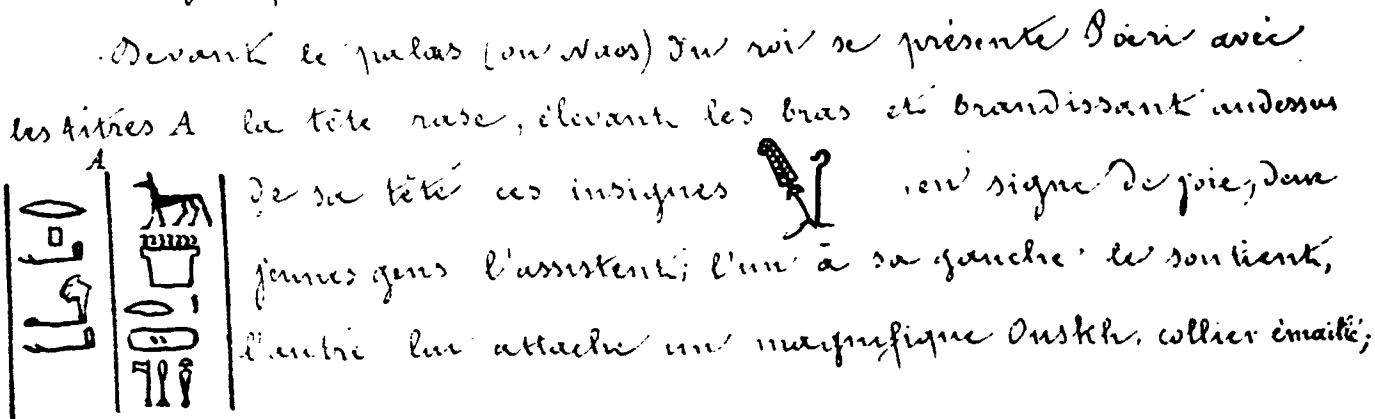 Devant le palais (ou Naos) du roi se présente Poëri avec
les titres A la tête rase, élevant les bras et brandissant audessus
A
de sa tête ces insignes , en signe de joie, deux
jeunes gens l'assistent; l'un à sa gauche le soutient,
l'autre lui attache un magnifique Ouskh, collier émaillé;